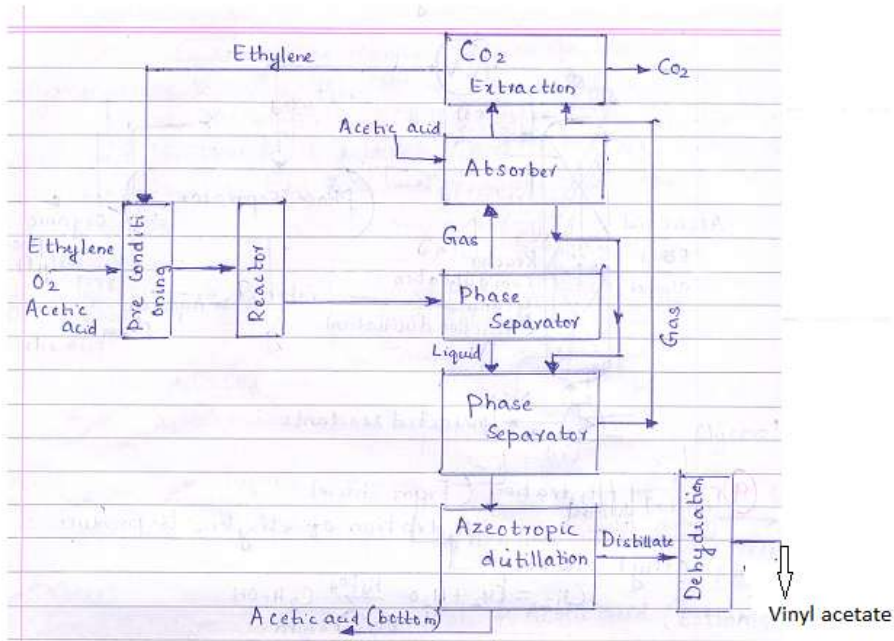 Ethylene
CO2
Extraction
CO2
Acetic acid
Absorber
Gas
Ethylene
O2
Acetic
acid
Pre Conditi
oning
Reactor
Phase
Separator
Gas
Liquid
Phase
Separator
Azeotropic
distillation
Distillate
Dehydration
Vinyl acetate
Acetic acid (bottom)